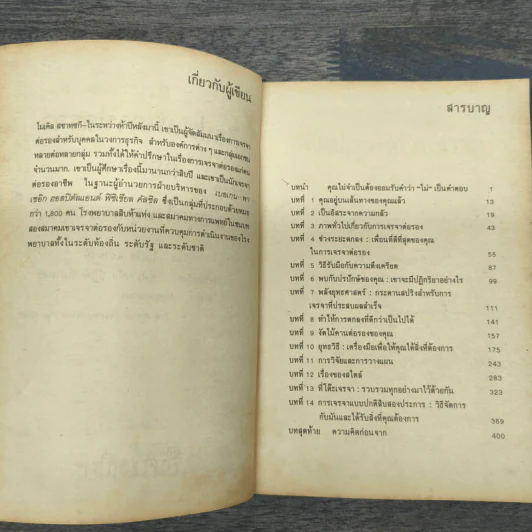 เกี่ยวกับผู้เขียน
ไมเคิล สชาทซกี-ในระหว่างห้าปีหลังมานี้ เขาเป็นผู้จัดสัมมนาเรื่องการเจรจา
ต่อรองสำหรับบุคคลในวงการธุรกิจ สำหรับองค์การต่าง ๆ และกลุ่มเอกชน
หลายต่อหลายกลุ่ม รวมทั้งได้ให้คำปรึกษาในเรื่องการเจรจาต่อรองแก่คน
จำนวนมาก เขาเป็นผู้ศึกษาเรื่องนี้มานานกว่าสิบปี และเขาเป็นนักเจรจา
ต่อรองอาชีพ ในฐานะผู้อำนวยการฝ่ายบริหารของ
ฮอสปิตัลแอนด์ ฟิซิเชียล คัลซิล ซึ่งเป็นกลุ่มที่ประกอบด้วยหมอ
กว่า 1,800 คน โรงพยาบาลสิบห้าแห่ง และสมาคมทางการแพทย์ในชนบท
สองสมาคมเขาเจรจาต่อรองกับหน่วยงานที่ควบคุมการดำเนินงานของโรง
พยาบาลทั้งในระดับท้องถิ่น ระดับรัฐ และระดับชาติ
สารบาญ
บทนำ คุณไม่จำเป็นต้องยอมรับคำว่า "ไม่" เป็นคำตอบ 1
บทที่ 1 คุณอยู่บนเส้นทางของคุณแล้ว 13
บทที่ 2 เป็นอิสระจากความกลัว 19
บทที่ 3 ภาพทั่วไปเกี่ยวกับการเจรจาต่อรอง 43
บทที่ 4 ช่วงระยะตกลง : เพื่อนที่ดีที่สุดของคุณ
ในการเจรจาต่อรอง 55
บทที่ 5 วิธีรับมือกับความตึงเครียด 87
บทที่ 6 พบกับปรปักษ์ของคุณ : เขาจะมีปฏิกิริยาอย่างไร 99
บทที่ 7 พลังยุทธศาสตร์ : กระดานสปริงสำหรับการ
เจรจาที่ประสบผลสำเร็จ 111
บทที่ 8 ทำให้การตกลงที่ดีกว่าเป็นไปได้ 141
บทที่ 9 งัดไม้คานต่อรองของคุณ 157
บทที่ 10 ยุทธวิธี : เครื่องมือเพื่อให้คุณได้สิ่งที่ต้องการ 175
บทที่ 11 การวิจัยและการวางแผน 243
บทที่ 12 เรื่องของสไตล์ 283
บทที่ 13 ที่โต๊ะเจรจา : รวบรวมทุกอย่างมาไว้ด้วยกัน 323
บทที่ 14 การเจรจาแบบปกติสิบสองประการ : วิธีจัดการ
กับมันและได้รับสิ่งที่คุณต้องการ 369
บทสุดท้าย ความคิดก่อนจาก 400